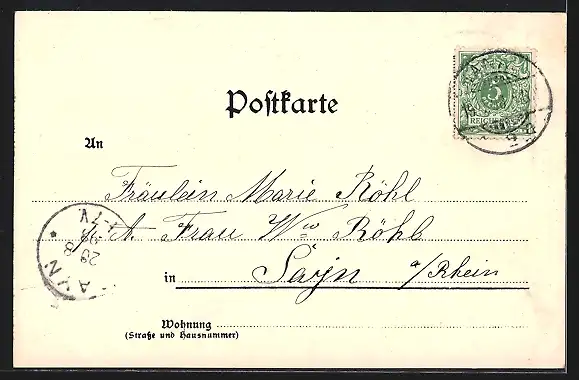 Postkarte
5
REICHSPOST
An
Fräulein Marie Röhl
p. A. Frau Ww Röhl
in Sayn a/Rhein
Wohnung
(Straße und Hausnummer)
AYN
29
8
98
7V